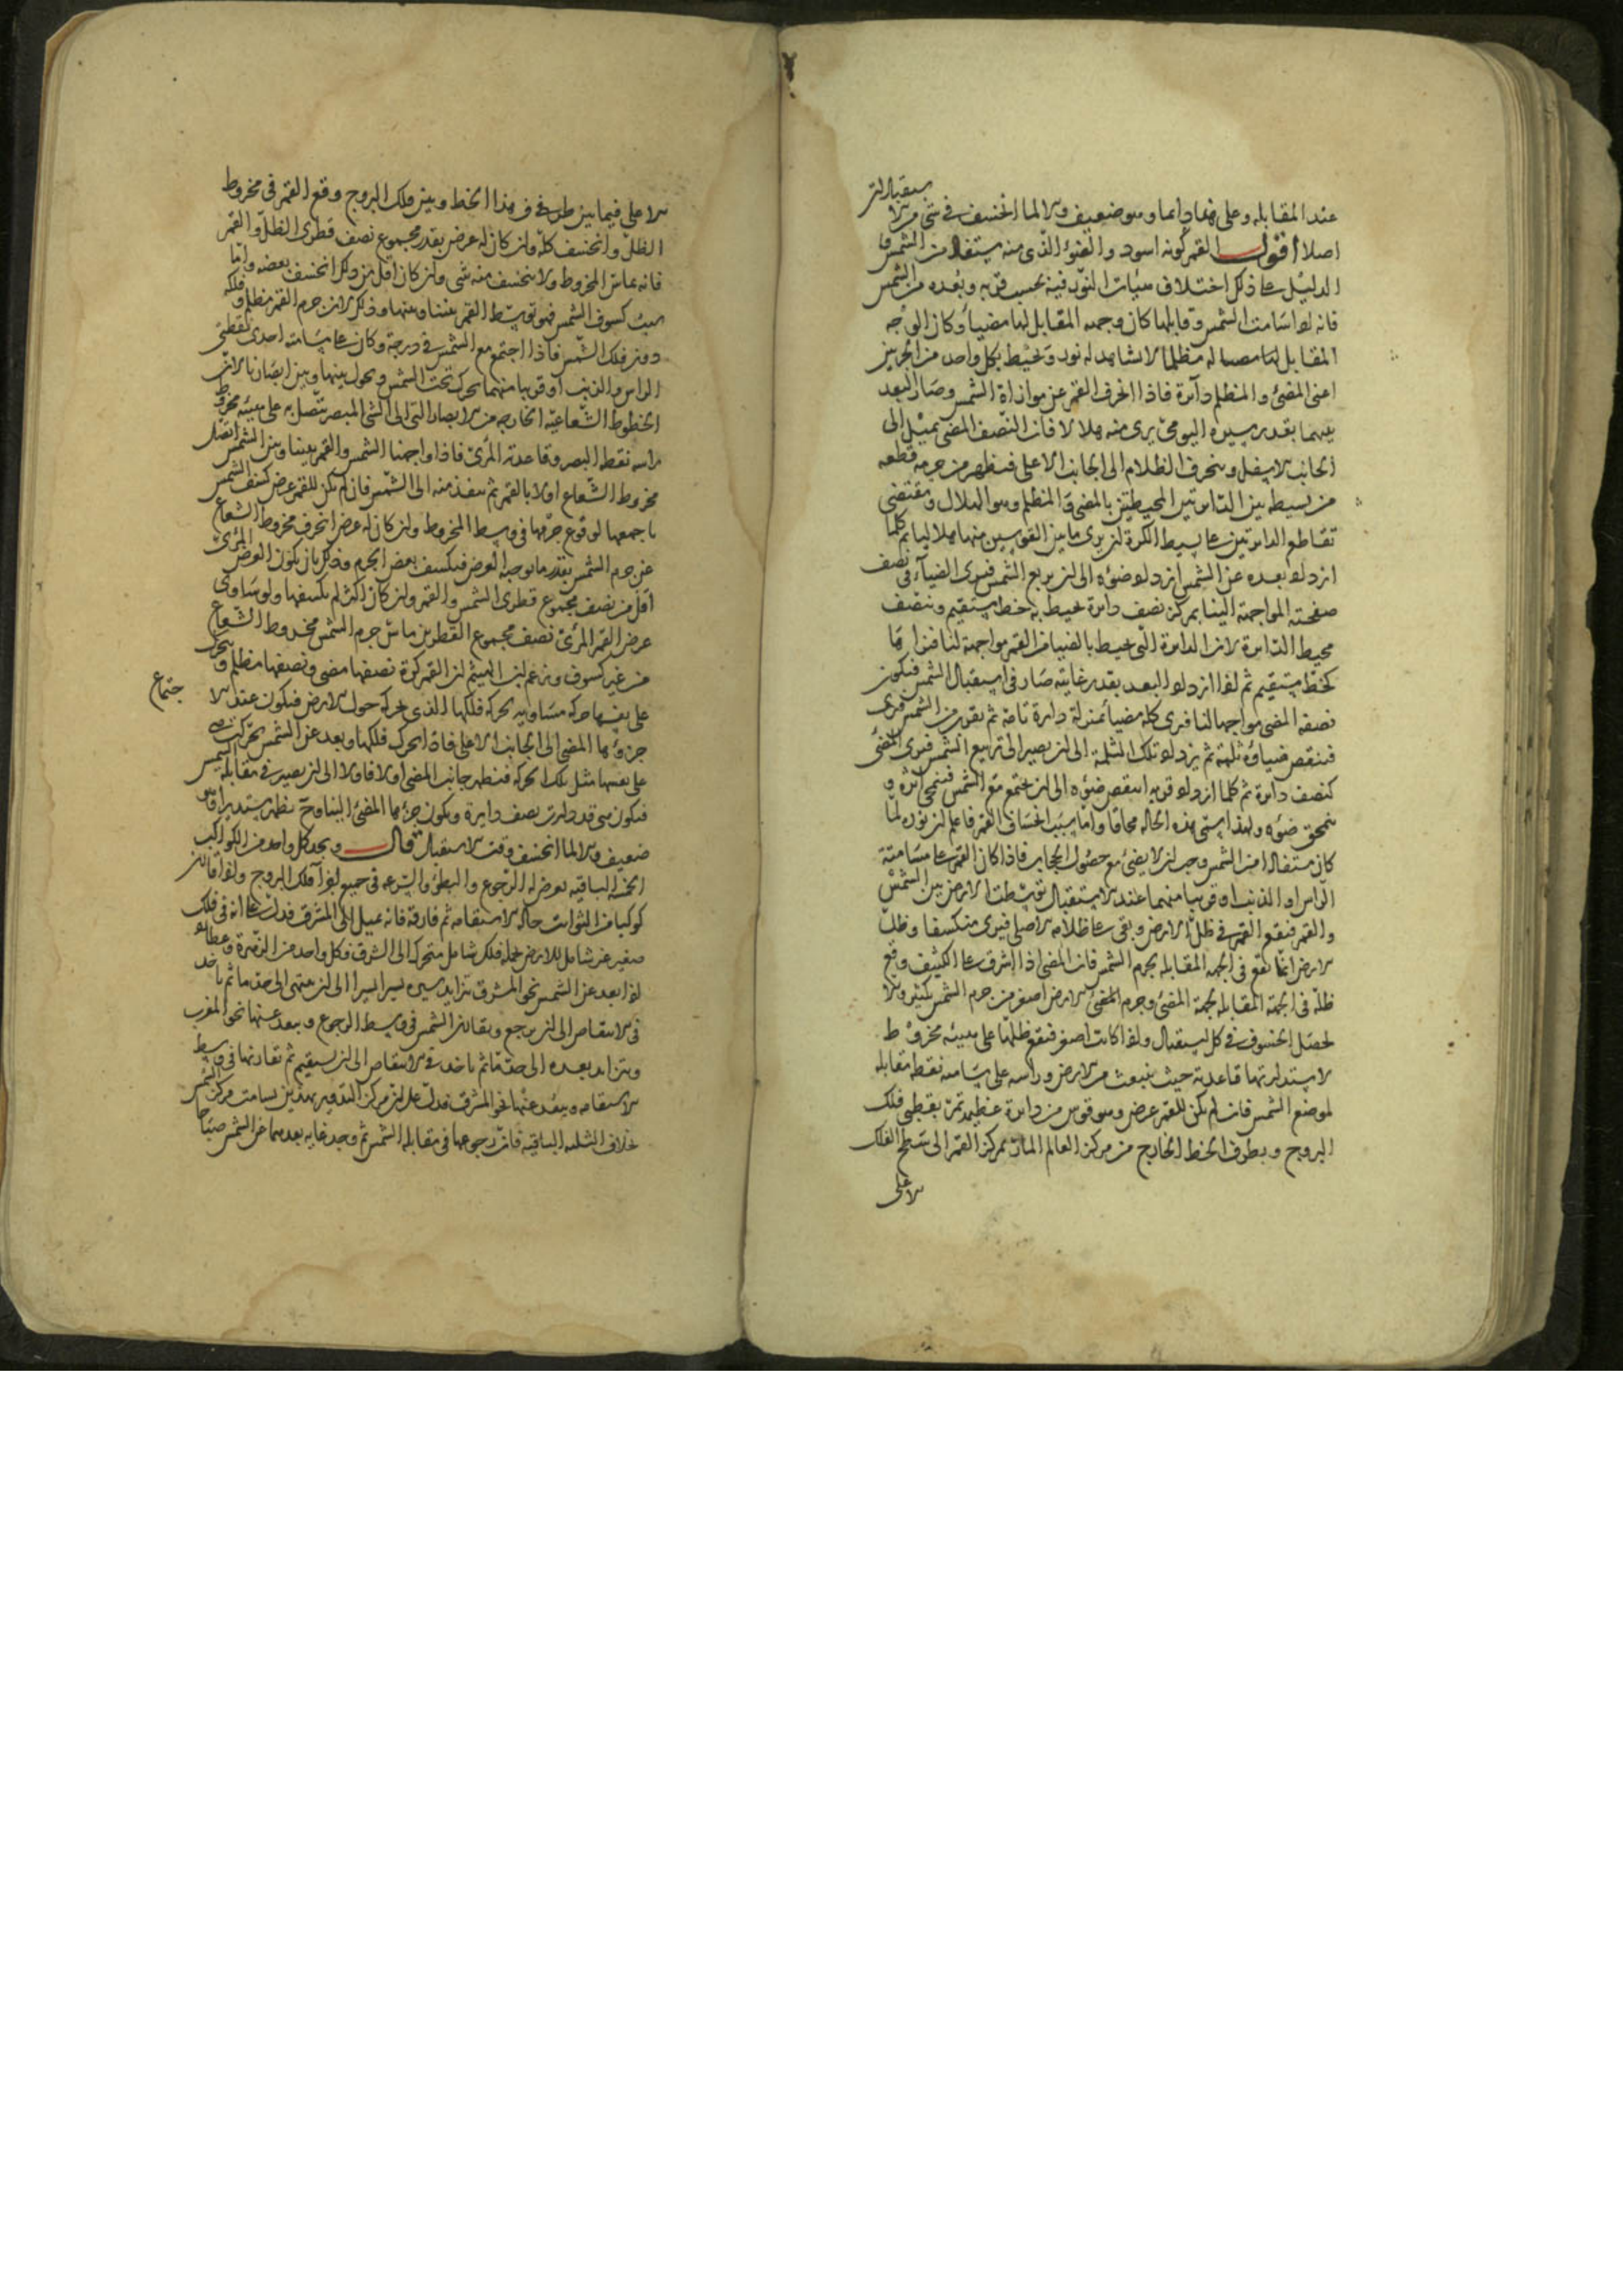 عند المقابلة وعلى هذا دايما وهو ضعيف والا لما انخسف في شي من الا
ستقبالات
اصلا اقول القمر كونه اسود والضوء الذي منه مستفاد من الشمس
الدليل على ذلك اختلاف هيئات النور فيه بحسب قربه وبعده من الشمس
فانه لو اسامت الشمس وقابلها كان وجهه المقابل لها مضيا وكان الوجه
المقابل لنا مظلما لا نشاهد له نور ويحيط بكل واحد من الجزين
اعني المضئ والمظلم دائرة فاذا انحرف القمر عن موازاة الشمس وصار البعد
بينهما بقدر مسيره اليومي يرى منه هلالا فان النصف المضي يميل الى
الجانب الاسفل وينحرف الظلام الى الجانب الاعلى فيظهر من جرمه قطعه
من بسيطه بين الدايرتين المحيطتين بالمضي والمظلم وهو الهلال ومقتضى
تقاطع الدايرتين على بسيط الكرة ان يرى ما بين القوسين منها هلاليا ثم كلما
ازداد بعده عن الشمس ازداد ضوه الى ان يربع الشمس فيرى الضياء في نصف
صفحته المواجهة الينا بمركز نصف دايرة يحيط به خط مستقيم ونصف
محيط الدايرة لان الدايرة التي تحيط بالضيا من القمر مواجهة لنا فنراها
كخط مستقيم ثم اذا ازداد البعد بقدر غايته صار في استقبال الشمس فيكون
نصفه المضي مواجها لنا فيرى كله مضيا بمنزلة دايرة تامة ثم يقرب من الشمس فيرى
فينقص ضياؤه ثلمة ثم يزداد تلك الثلمة الى ان يصير الى تربيع الشمس فيرى المضئ
كنصف دايرة ثم كلما ازداد قربه انتقص ضوه الى ان يجتمع مع الشمس فينمحي اثره و
ينمحق ضوه ولهذا يسمى هذه الحالة محاقا واما سبب انخساف القمر فاعلم ان نوره لما
كان مستفادا من الشمس وجب ان لا يضئ مع حصول الحجاب فاذا كان القمر على مسامتة
الراس او الذنب او قريبا منهما عند الاستقبال توسطت الارض بين الشمس
والقمر فيقع القمر في ظل الارض وبقى على ظلامه الاصلي فيرى منكسفا وظل
الارض انما يقع في الجهة المقابلة لجرم الشمس فان المضي اذا اشرق على الكثيف وقع
ظله في الجهة المقابلة لجهة المضئ وجرم الارض اصغر من جرم الشمس بكثير والا
لحصل الخسوف في كل استقبال ولما كانت اصغر فيقع ظلها على هيئة مخروط
لاستدارتها قاعدته حيث ينبعث من الارض وراسه على مسامتة نقطة مقابلة
لموضع الشمس فان لم يكن للقمر عرض وهو قوس من دايرة عظيمة تمر بقطبي فلك
البروج وبطرف الخط الخارج من مركز العالم المار بمركز القمر الى سطح الفلك
الاعلى
الاعلى فيما بين طرف هذا الخط وبين فلك البروج وقع القمر في مخروط
الظل وانخسف كله وان كان له عرض بقدر مجموع نصف قطري الظل والقمر
فانه يماس المخروط ولا ينخسف منه شي وان كان اقل من ذلك انخسف بعضه واما
سبب كسوف الشمس فهو توسط القمر بيننا وبينها وذلك لان جرم القمر مظلم وفلكه
دون فلك الشمس فاذا اجتمع مع الشمس في درجة وكان على مسامتة احدى نقطتي
الراس والذنب او قريبا منهما تحرك تحت الشمس وحول بينها وبين ابصارنا لان
الخطوط الشعاعية الخارجة من الابصار التي الى الشي المبصر تتصل به على هيئة مخروط
راسه نقطة البصر وقاعدته المرئي فاذا واجهنا الشمس والقمر بيننا وبين الشمس اتصل
مخروط الشعاع اولا بالقمر ثم ينفذ منه الى الشمس فان لم يكن للقمر عرض كسف الشمس
باجمعها لوقوع جرمها في وسط المخروط وان كان له عرض انحرف مخروط الشعاع
عن جرم الشمس بقدر ما يوجبه العرض فيكسف بعض الجرم وذلك بان يكون العرض المرئي
اقل من نصف مجموع قطري الشمس والقمر وان كان اكثر لم يكسفها ولو ساوى
عرض القمر المرئي نصف مجموع القطرين ماس جرم الشمس مخروط الشعاع
من غير كسوف وزعم ابن الهيثم ان القمر كرة نصفها مضي ونصفها مظلم ويتحرك
على نفسها حركة مساوية لحركة فلكها الذي يحركه حول الارض فيكون عند الا
جتماع
جزوها المضي الى الجانب الاعلى فاذا تحرك فلكها وبعد عن الشمس تحركت
على نفسها مثل تلك الحركة فيظهر جانب المضي اولا فاولا الى ان يصير في مقابلة الشمس
فيكون هي قد دارت نصف دايرة ويكون جزءها المضئ الينا وح نظهر مستديرا
ضعيف والا لما انخسف وقت الاستقبال قال ونجد كل واحد من الكواكب
الخمسة الباقية يعرض له الرجوع والبطؤ والسرعه في جميع اجزآ فلك البروج واذا قارن
كوكبا من الثوابت حالة الاستقامه ثم فارقه فانه يميل الى المشرق فدل على انه في فلك
صغير غير شامل للارض يحمله فلك شامل متحرك الى الشرق وكل واحد من الزهرة وعطارد
اذا بعد عن الشمس نحو المشرق يتزايد سيره يسيرا يسيرا الى ان ينتهي الى حد ما ثم ياخذ
في الانتقاص الى ان يرجع ويقارن الشمس في وسط الرجوع ويبعد عنها نحو المغرب
ويتزايد بعده الى حد ما ثم ياخذ في الانتقاص الى ان يستقيم ثم يقارنها في وسط
الاستقامه ويبعد عنها نحو المشرق فدل على ان مركز التدوير بهذين يسامت مركز الشمس
خلاف الثلثه الباقيه فان رجوعها في مقابلة الشمس ثم وجد غاية بعدهما عن الشمس صباحا